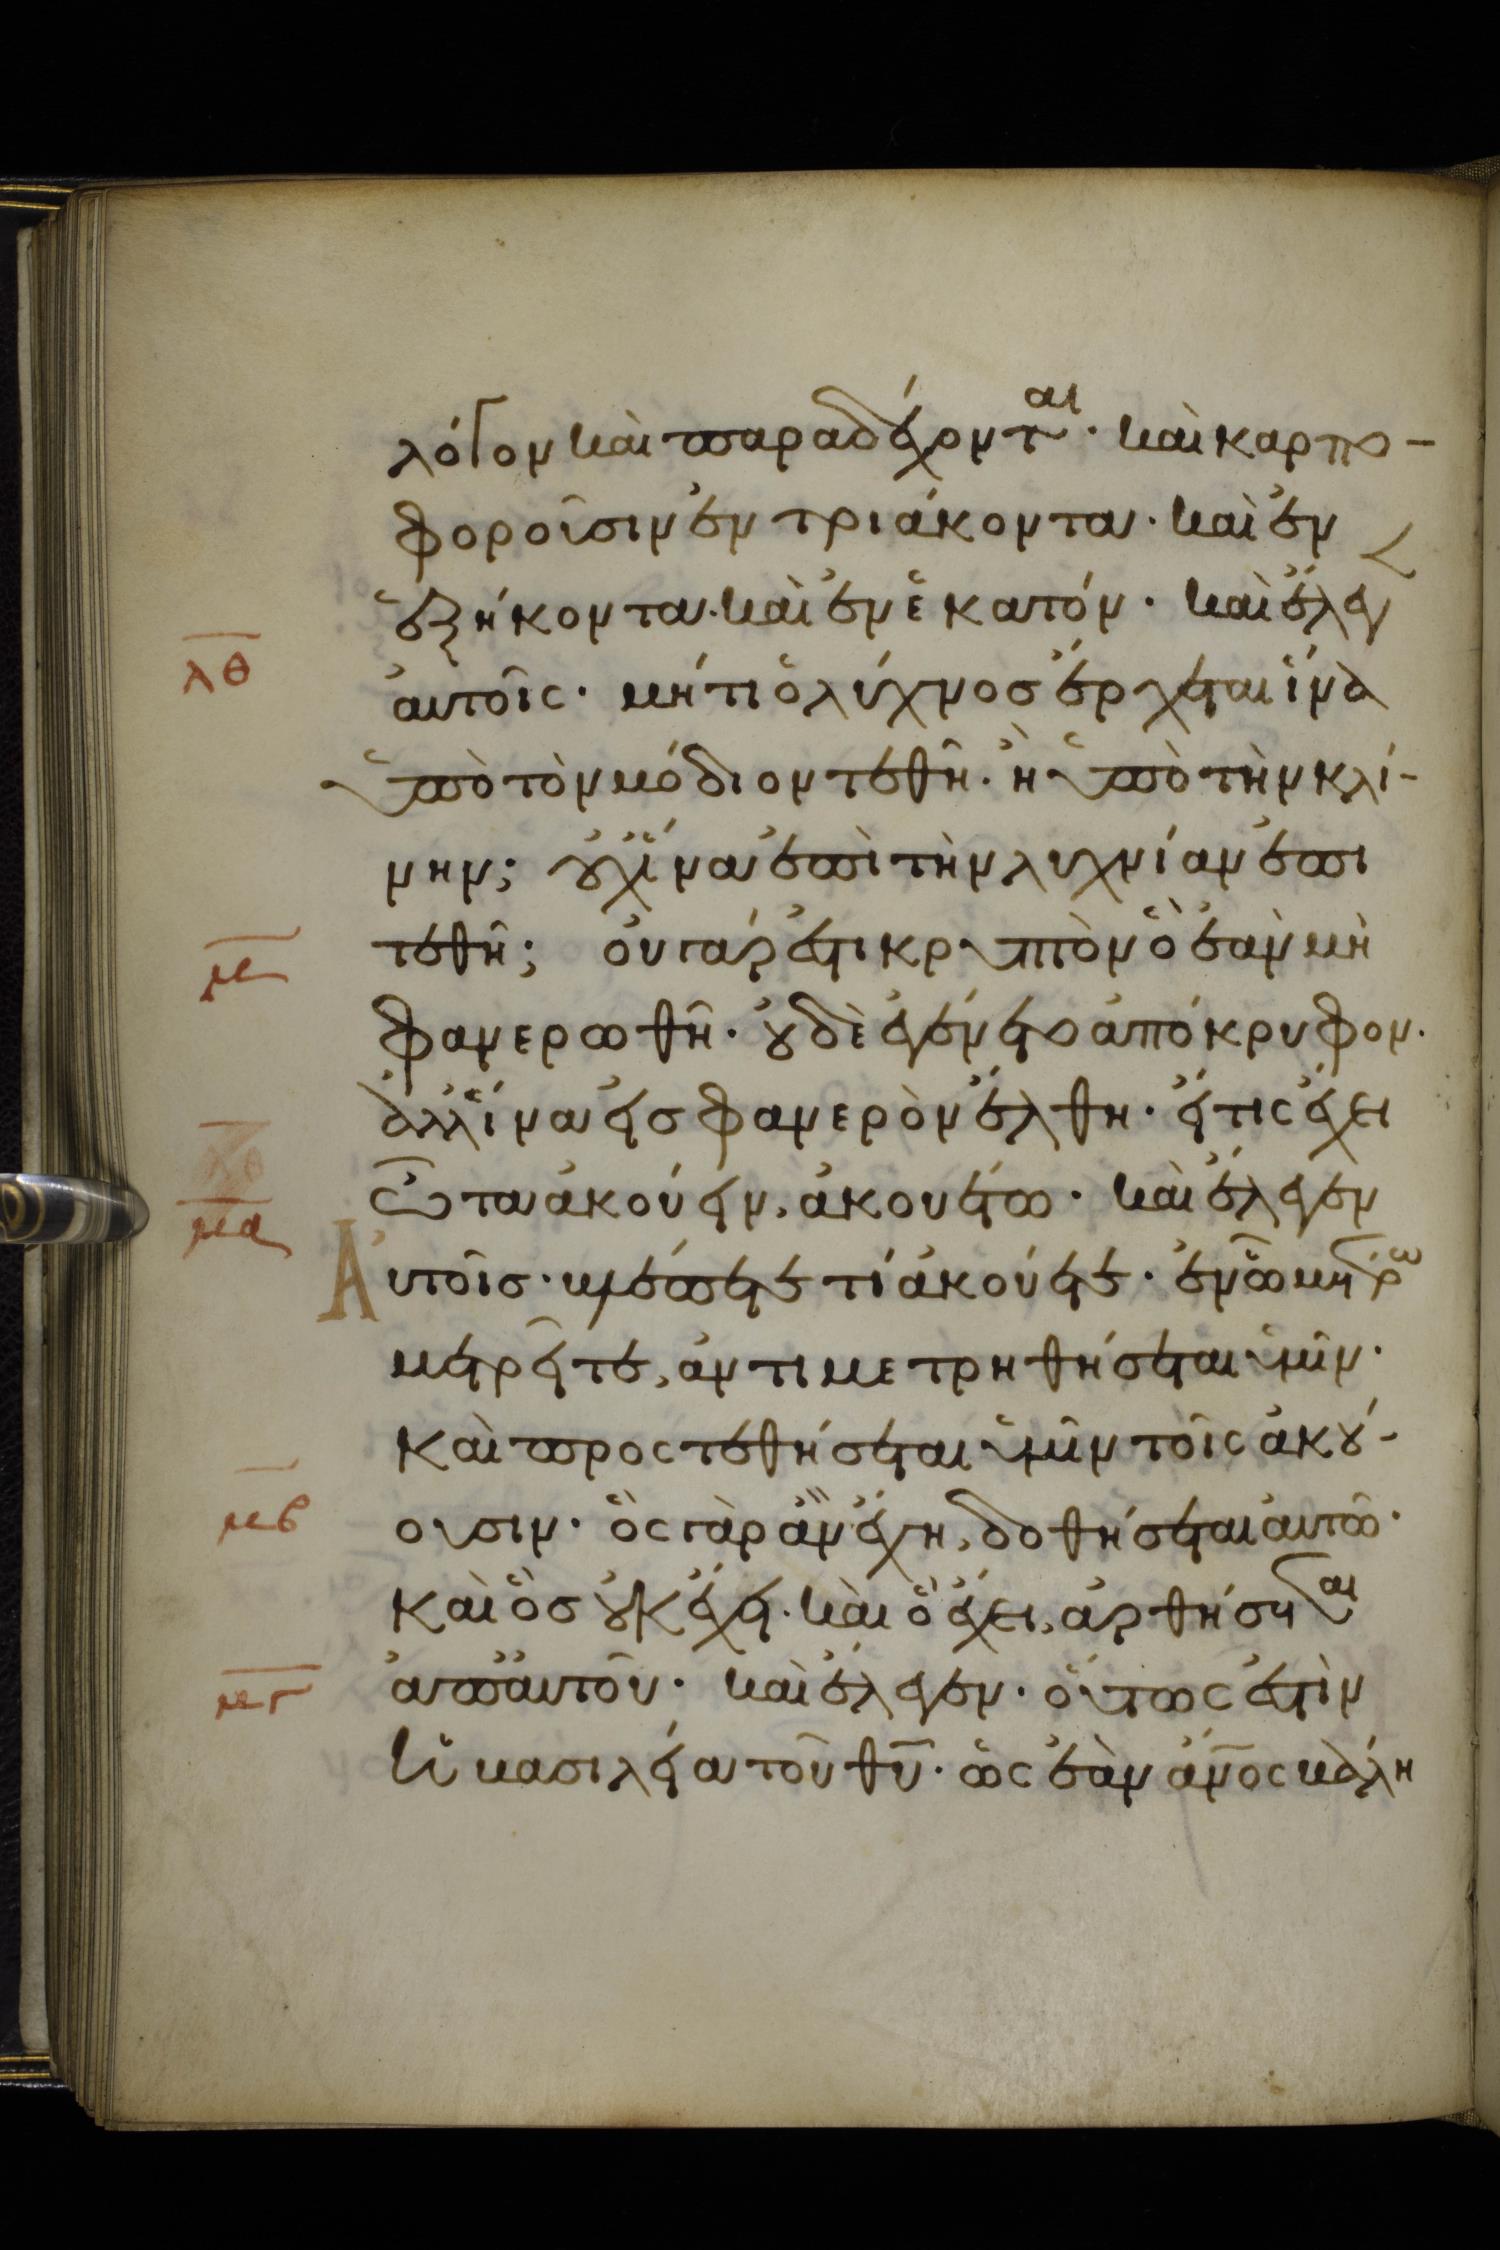 λόγον καὶ παραδέχονται · καὶ καρπο-
φοροῦσιν ἐν τριάκοντα · καὶ ἐν
ἑξήκοντα · καὶ ἐν ἑκατόν · καὶ ἔλεγ
λθ
αὐτοῖς · μήτι ὁ λύχνος ἔρχεται ἵνα
ὑπὸ τὸν μόδιον τεθῆ · ἢ ὑπὸ τὴν κλί-
νην; οὐχ ἵνα ἐπὶ τὴν λυχνίαν ἐπι
μ
τεθῆ; οὐ γάρ ἐστι κρυπτὸν ὃ ἐὰν μὴ
φανερωθῆ · οὐδὲ ἐγένετο ἀπόκρυφον ·
ἀλλ' ἵνα εἰς φανερὸν ἔλθη · εἴ τις ἔχει
ὦτα ἀκούειν, ἀκουέτω · καὶ ἔλεγεν
μα
Αὐτοῖς · βλέπετε τί ἀκούετε · ἐν ὧ μέτρω
μετρεῖτε, ἀντιμετρηθήσεται ὑμῖν ·
καὶ προστεθήσεται ὑμῖν τοῖς ἀκού-
μβ
ουσιν · ὃς γὰρ ἂν ἔχη, δοθήσεται αὐτῶ ·
καὶ ὃς οὐκ ἔχει · καὶ ὃ ἔχει, ἀρθήσεται
μγ
ἀπ' αὐτοῦ · καὶ ἔλεγεν · οὕτως ἐστὶν
ἡ βασιλεία τοῦ θυ · ὡς ἐὰν ἄνος βάλη